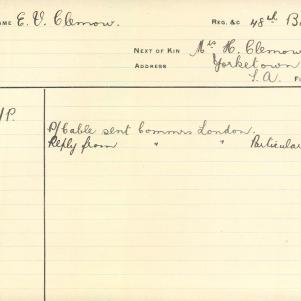 NAME E. V. Clemow. REG. &C 48th Ba
NEXT OF KIN Mrs H. Clemow
ADDRESS Yorketown
S.A.
/P.
P/Cable sent Commrs London.
Reply from " " Particular